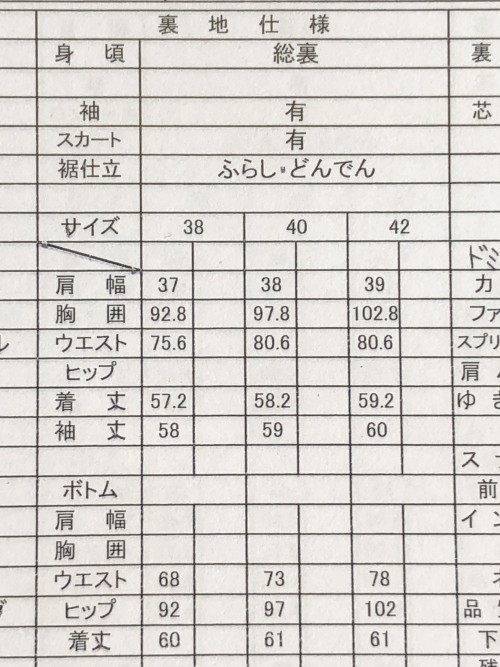 裏地仕様
身頃 総裏 裏
袖 有 芯
スカート 有
裾仕立 ふらし どんでん
サイズ 38 40 42
ドミ
肩幅 37 38 39 カ
胸囲 92.8 97.8 102.8 ファ
ル ウエスト 75.6 80.6 80.6 スプリ
ヒップ 肩
着丈 57.2 58.2 59.2 ゆき
袖丈 58 59 60
ス
ボトム 前
肩幅 イン
胸囲
ウエスト 68 73 78
ヒップ 92 97 102 品
着丈 60 61 61 下